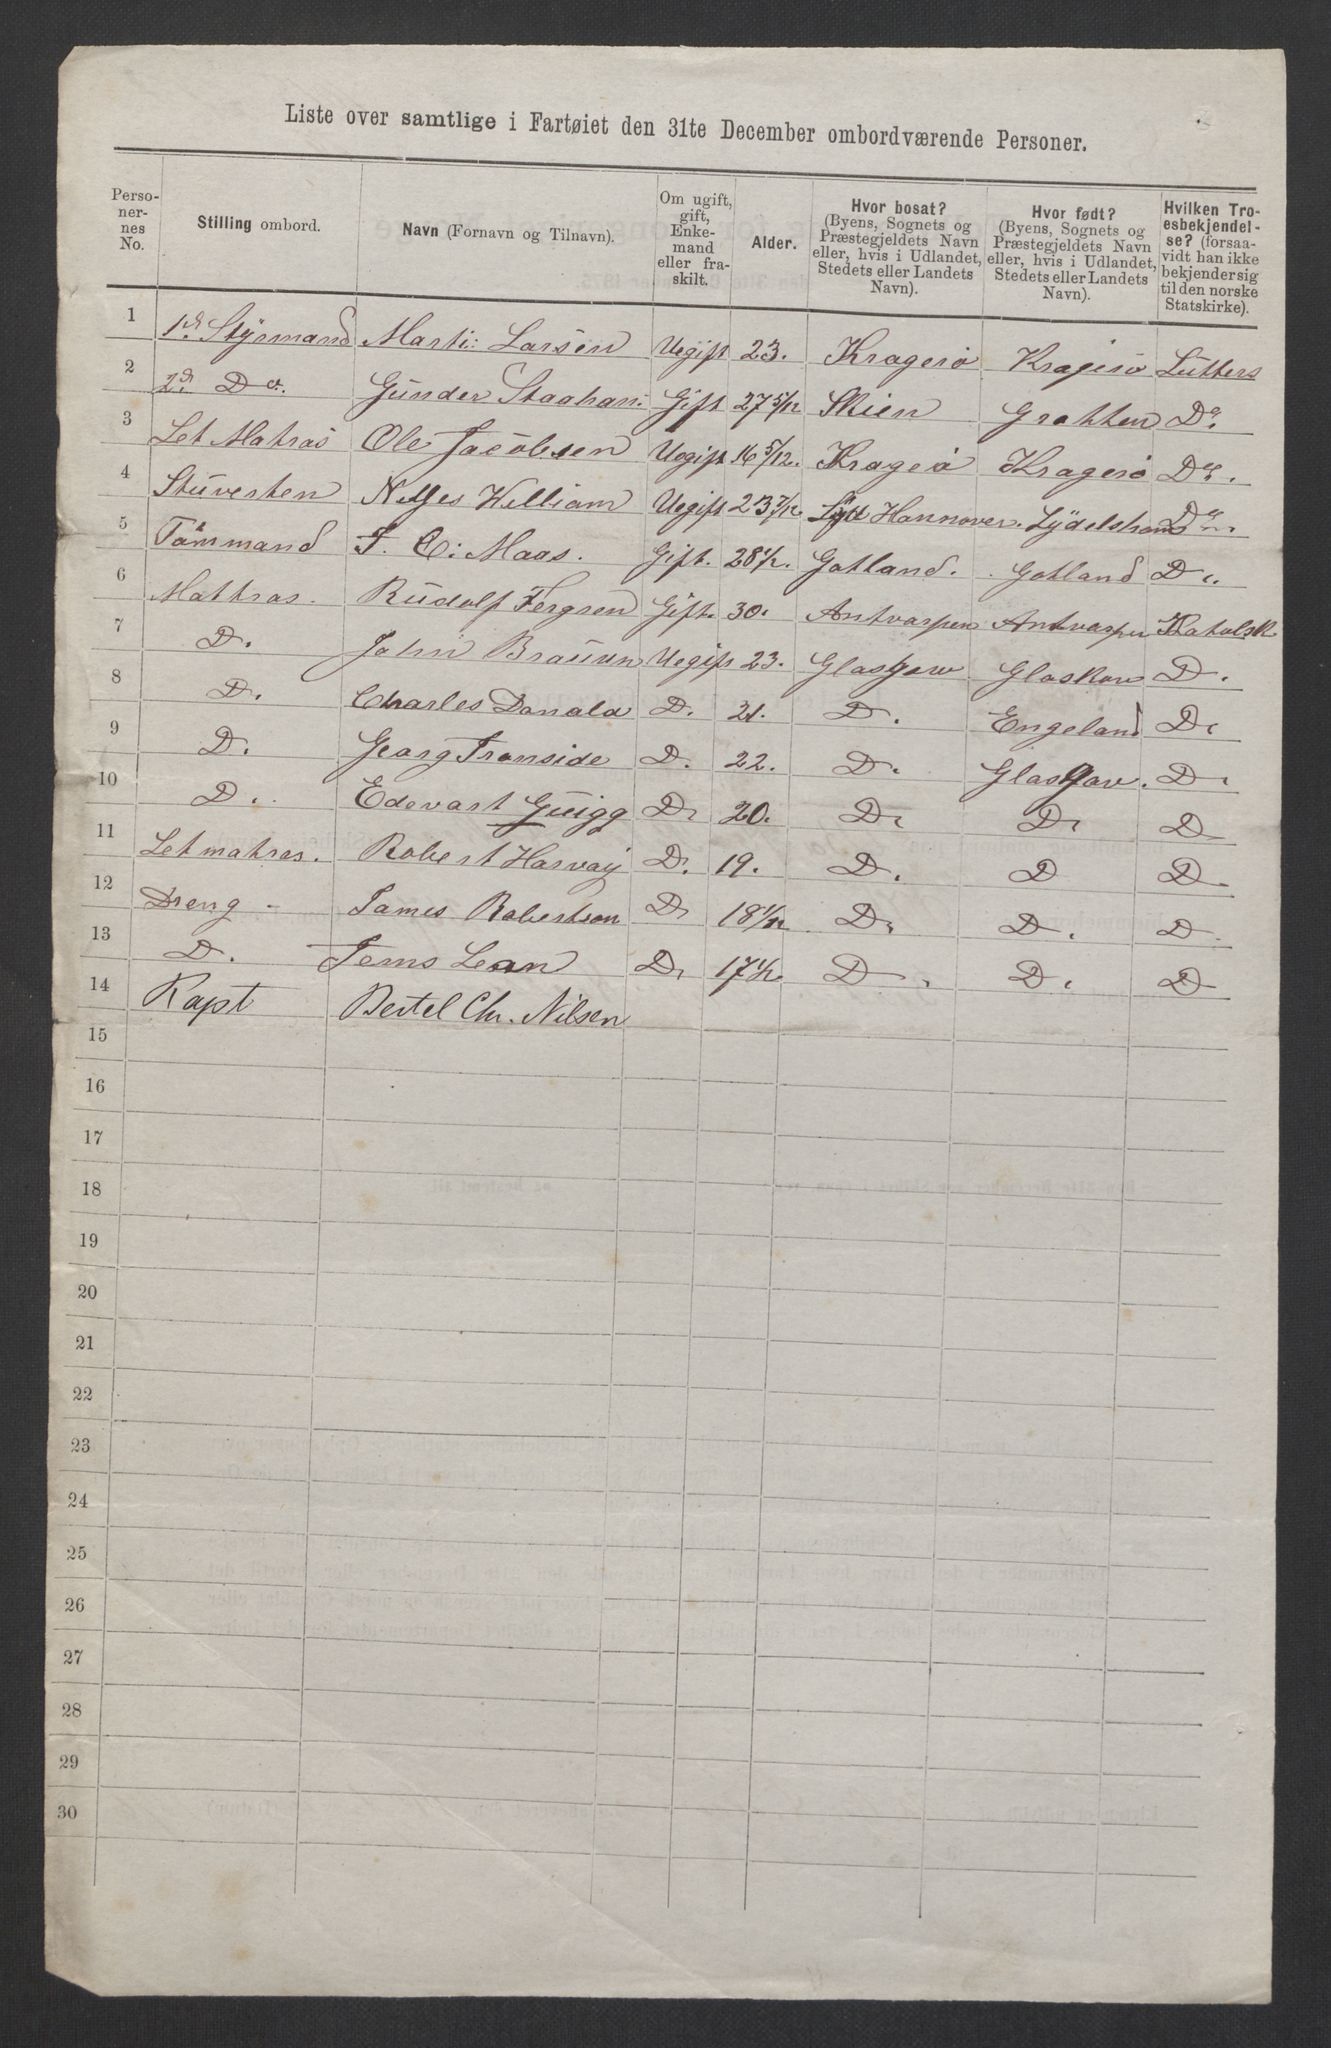 Liste over samtlige i Fartøiet den 31te December ombordværende Personer.
Perso-
ner-
nes
No.
Stilling ombord.
Navn (Fornavn og Tilnavn).
Om ugift,
gift,
Enke-
mand
eller fra-
skilt.
Alder.
Hvor bosat?
(Byens, Sognets og
Præstegjeldets Navn
eller, hvis i Udlandet,
Stedets eller Landets
Navn).
Hvor født?
(Byens, Sognets og
Præstegjeldets Navn
eller, hvis i Udlandet,
Stedets eller Landets
Navn).
Hvilken Tro-
esbekjendel-
se? (forsaa-
vidt han ikke
bekjender sig
til den norske
Statskirke).
1 Styrmand Marti: Larsen Uegift 23. Kragerö Kragerö Lutters
2 2d. Do. Gunder Gift 27 5/12 Skien Do.
3 Let Matros Ole Jacobsen Uegift 16 5/12. Kragerö Kragerö Do.
4 Stuverten William Uegift 23 7/12 Hannover. Do.
5 Tömmand Maas. Gift. 28 1/2. Gotland. Gotland Do.
6 Mattros. Rudolf Fergsen Gift. 30. Antvarpen Antvarpen Katolsk
7 D. John Braüun Uegift 23. Glasgow Glaskow D.
8 D. Charles Donald D. 21. D. Engeland D.
9 D. Georg Fronside D. 22. D. Glasgow. D.
10 D. Edevart Guigg D. 20. D. D. D
11 Letmatros. Robert Harvaÿ D. 19. D. D D
12 Dreng James Robertson D. 18 1/12 D. D. D
13 D. Jems Lean D. 17 1/2 D. D. D
14 Kapt Bertel Chr. Nilsen
15
16
17
18
19
20
21
22
23
24
25
26
27
28
29
30